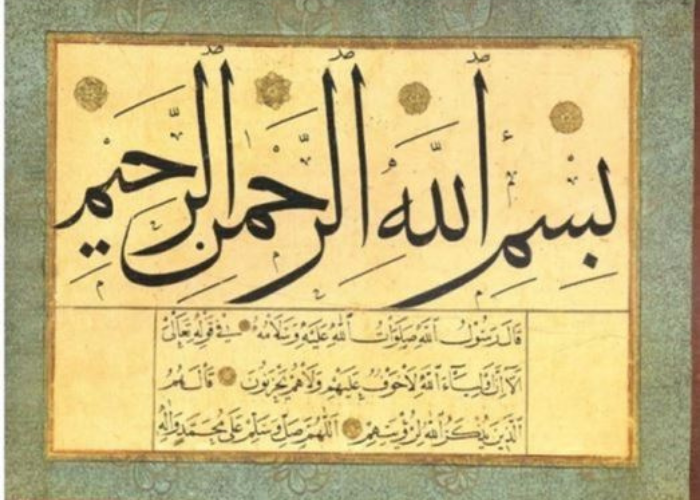 بسم الله الرحمن الرحيم
قال رسول الله صلوات الله عليه وسلامه في قوله تعالى
الا ان اولياء الله لا خوف عليهم ولا هم يحزنون قال هم
الذين يذكر الله لرؤيتهم اللهم صل وسلم على محمد واله